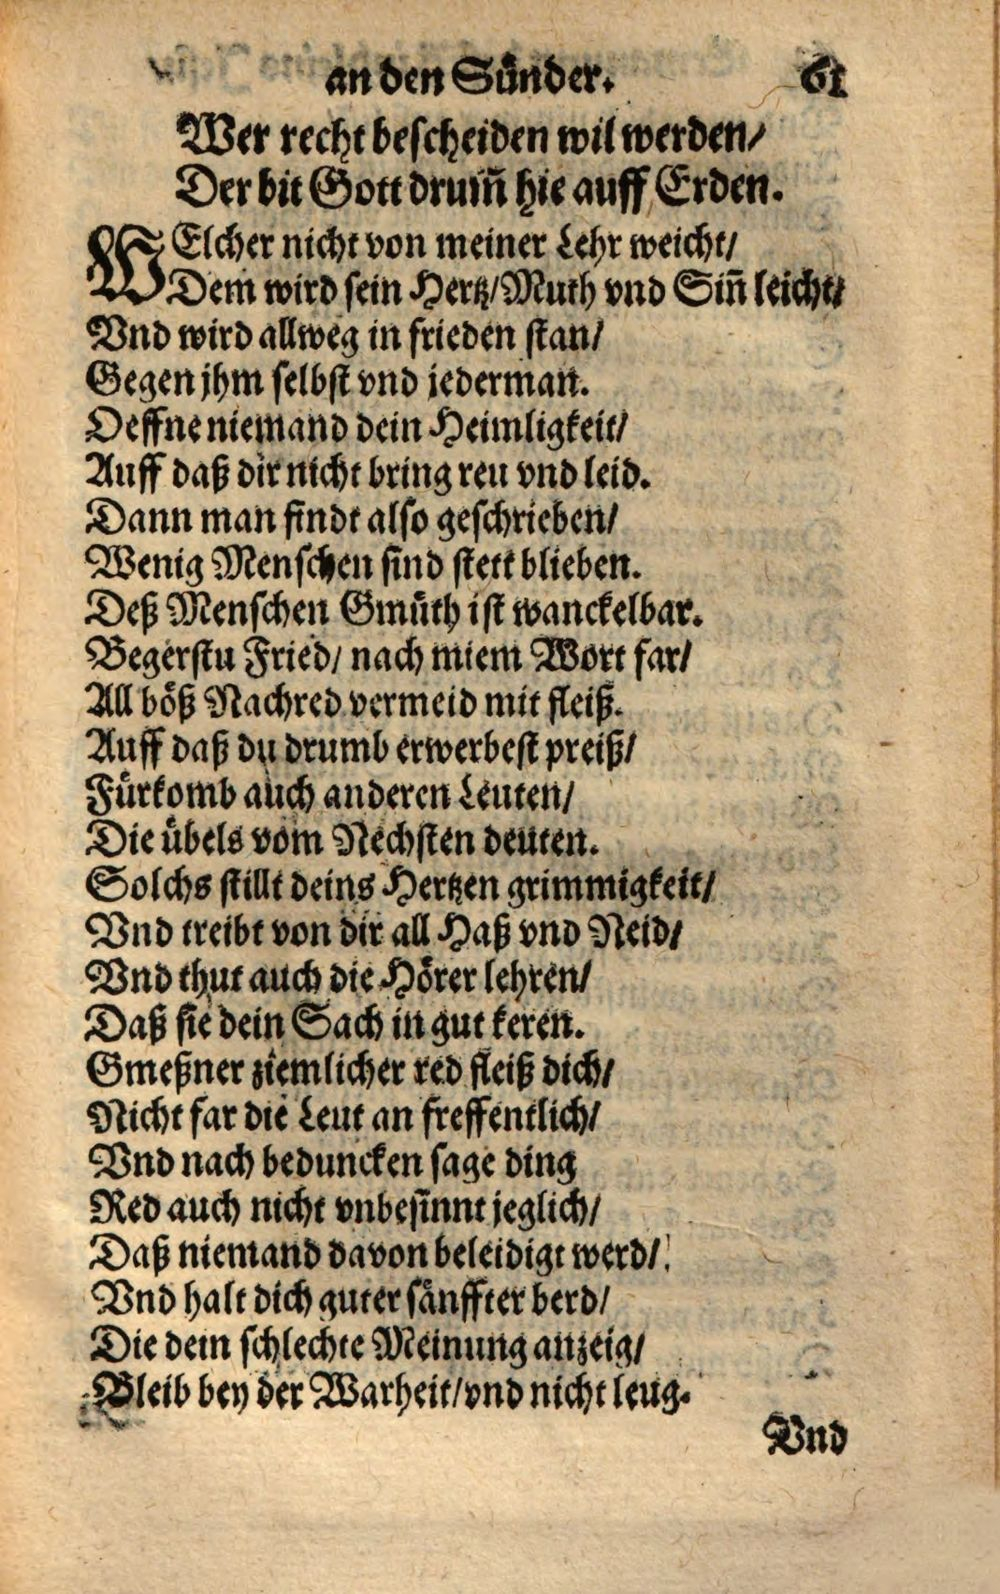 an den Sünder. 61
Wer recht bescheiden wil werden/
Der bit Gott drum̃ hie auff Erden.
WElcher nicht von meiner Lehr weicht/
Dem wird sein Hertz/Muth vnd Sin̄ leicht/
Vnd wird allweg in frieden stan/
Gegen jhm selbst vnd jederman.
Oeffne niemand dein Heimligkeit/
Auff daß dir nicht bring reu vnd leid.
Dann man findt also geschrieben/
Wenig Menschen sind stett blieben.
Deß Menschen Gmüth ist wanckelbar.
Begerstu Fried/ nach miem Wort far/
All böß Nachred vermeid mit fleiß.
Auff daß du drumb erwerbest preiß/
Fürkomb auch anderen Leuten/
Die übels vom Nechsten deuten.
Solchs stillt deins Hertzen grimmigkeit/
Vnd treibt von dir all Haß vnd Neid/
Vnd thut auch die Hörer lehren/
Daß sie dein Sach in gut keren.
Gmeßner ziemlicher red fleiß dich/
Nicht far die Leut an freffentlich/
Vnd nach beduncken sage ding
Red auch nicht vnbesinnt jeglich/
Daß niemand davon beleidigt werd/
Vnd halt dich guter sänffter berd/
Die dein schlechte Meinung anzeig/
Bleib bey der Warheit/vnd nicht leug.
Vnd